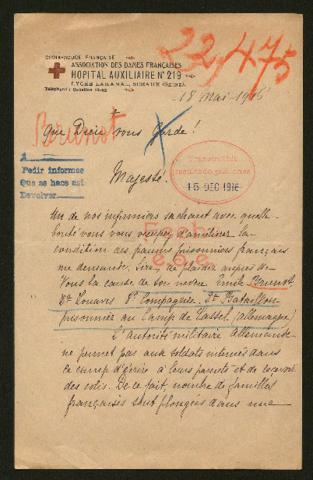 CROIX-ROUGE FRANÇAISE
ASSOCIATION DES DAMES FRANÇAISES
HOPITAL AUXILIAIRE N° 219
LYCÉE LAKANAL, SCEAUX (SEINE)
22,475
18 Mai 1916
Que Dieu vous Garde!
Brunot
Pedir informes
Que se haga así
Devolver
15 DEC 1916
Majesté
Un de nos infirmiers sachant avec quelle
bonté vous vous occupez d'améliorer la
condition des pauvres prisonniers français
me demande, Sire, de plaider auprès de
Vous la cause de son neveu Emile Brunot
8e Compagnie, 2e Bataillon
prisonnier au Camp de Cassel (Allemagne)
L'autorité militaire Allemande
ne permet pas aux soldats internés dans
ce camp d'écrire à leurs parents et de recevoir
des colis. De ce fait, nombre de familles
françaises sont plongées dans une